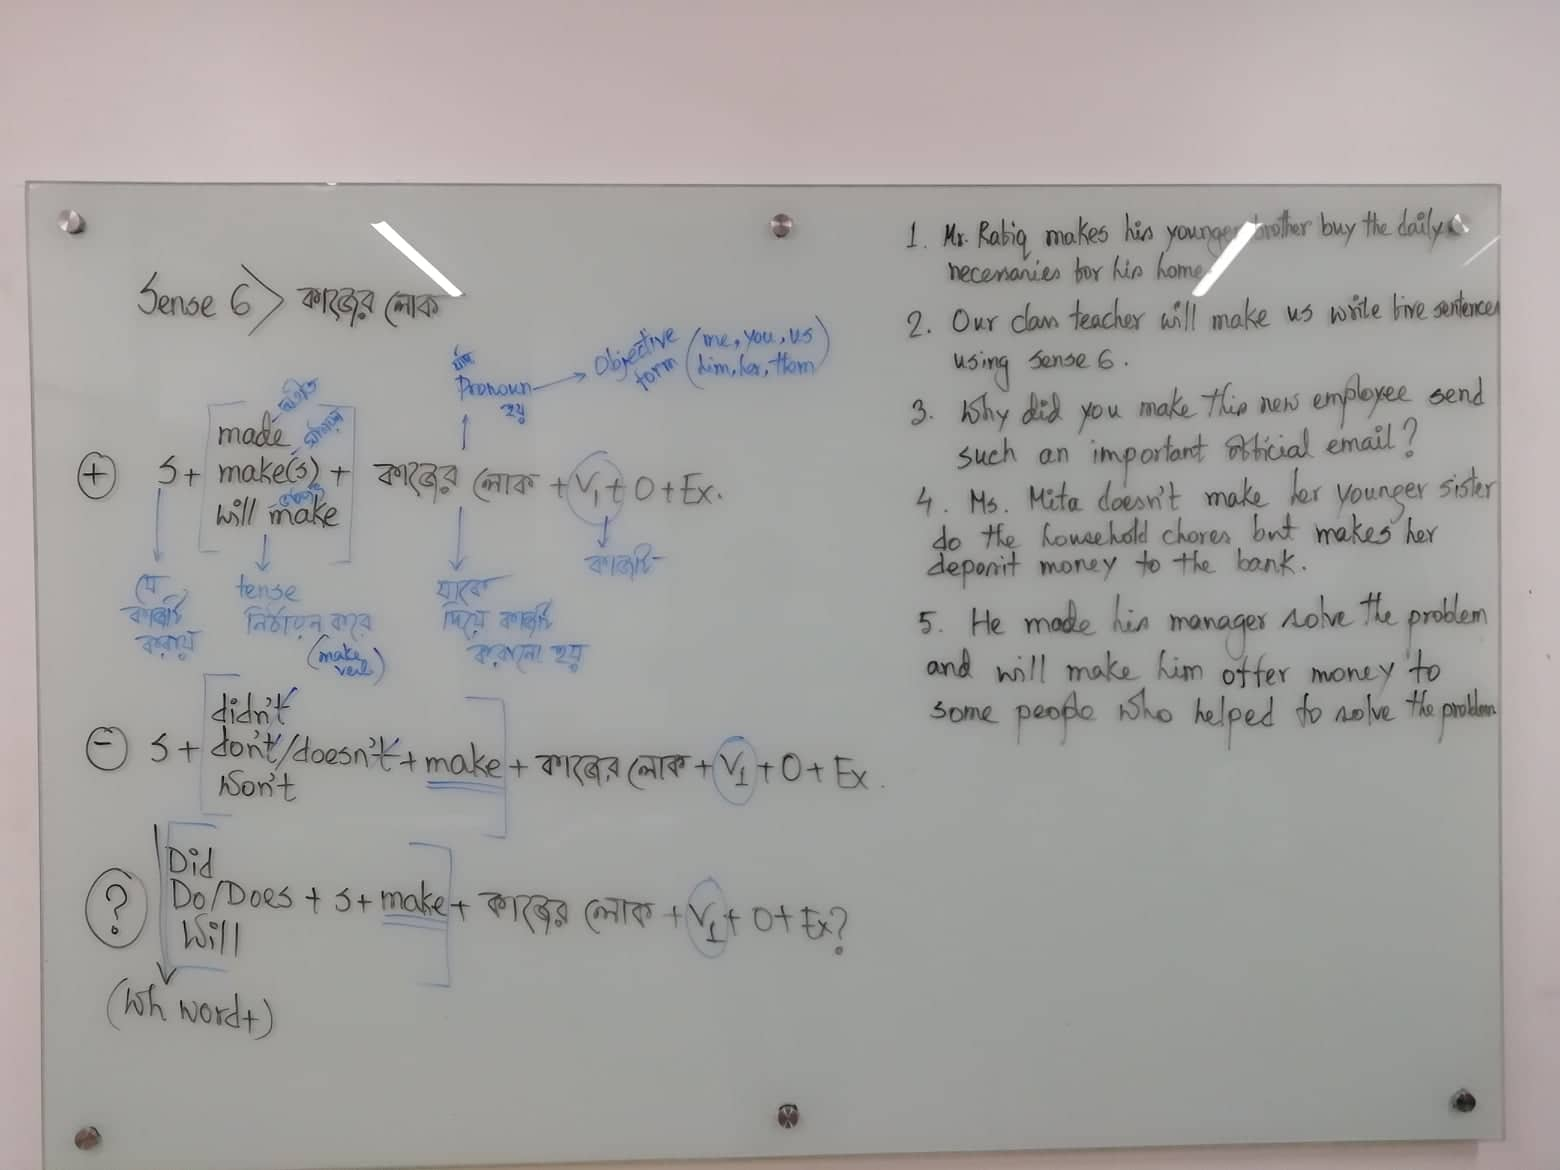 Sense 6 > কাজের লোক
যদি
Pronoun → Objective form (me, you, us
him, her, them)
হয়
made অতীত
(+) S + make(s) + কাজের লোক + V1 + O + Ex.
will make
যে
কাজটি
করায়
tense
নির্ধারন করে
(make
verb)
যাকে
দিয়ে কাজটি
করানো হয়
কাজটি
didn't
(-) S + don't/doesn't + make + কাজের লোক + V1 + O + Ex.
Won't
Did
(?) Do/Does + S + make + কাজের লোক + V1 + O + Ex?
Will
(Wh word+)
1. Mr. Rabiq makes his younger brother buy the daily
necessaries for his home.
2. Our class teacher will make us write five sentences
using sense 6.
3. Why did you make this new employee send
such an important official email?
4. Ms. Mita doesn't make her younger sister
do the household chores but makes her
deposit money to the bank.
5. He made his manager solve the problem
and will make him offer money to
some people who helped to solve the problem